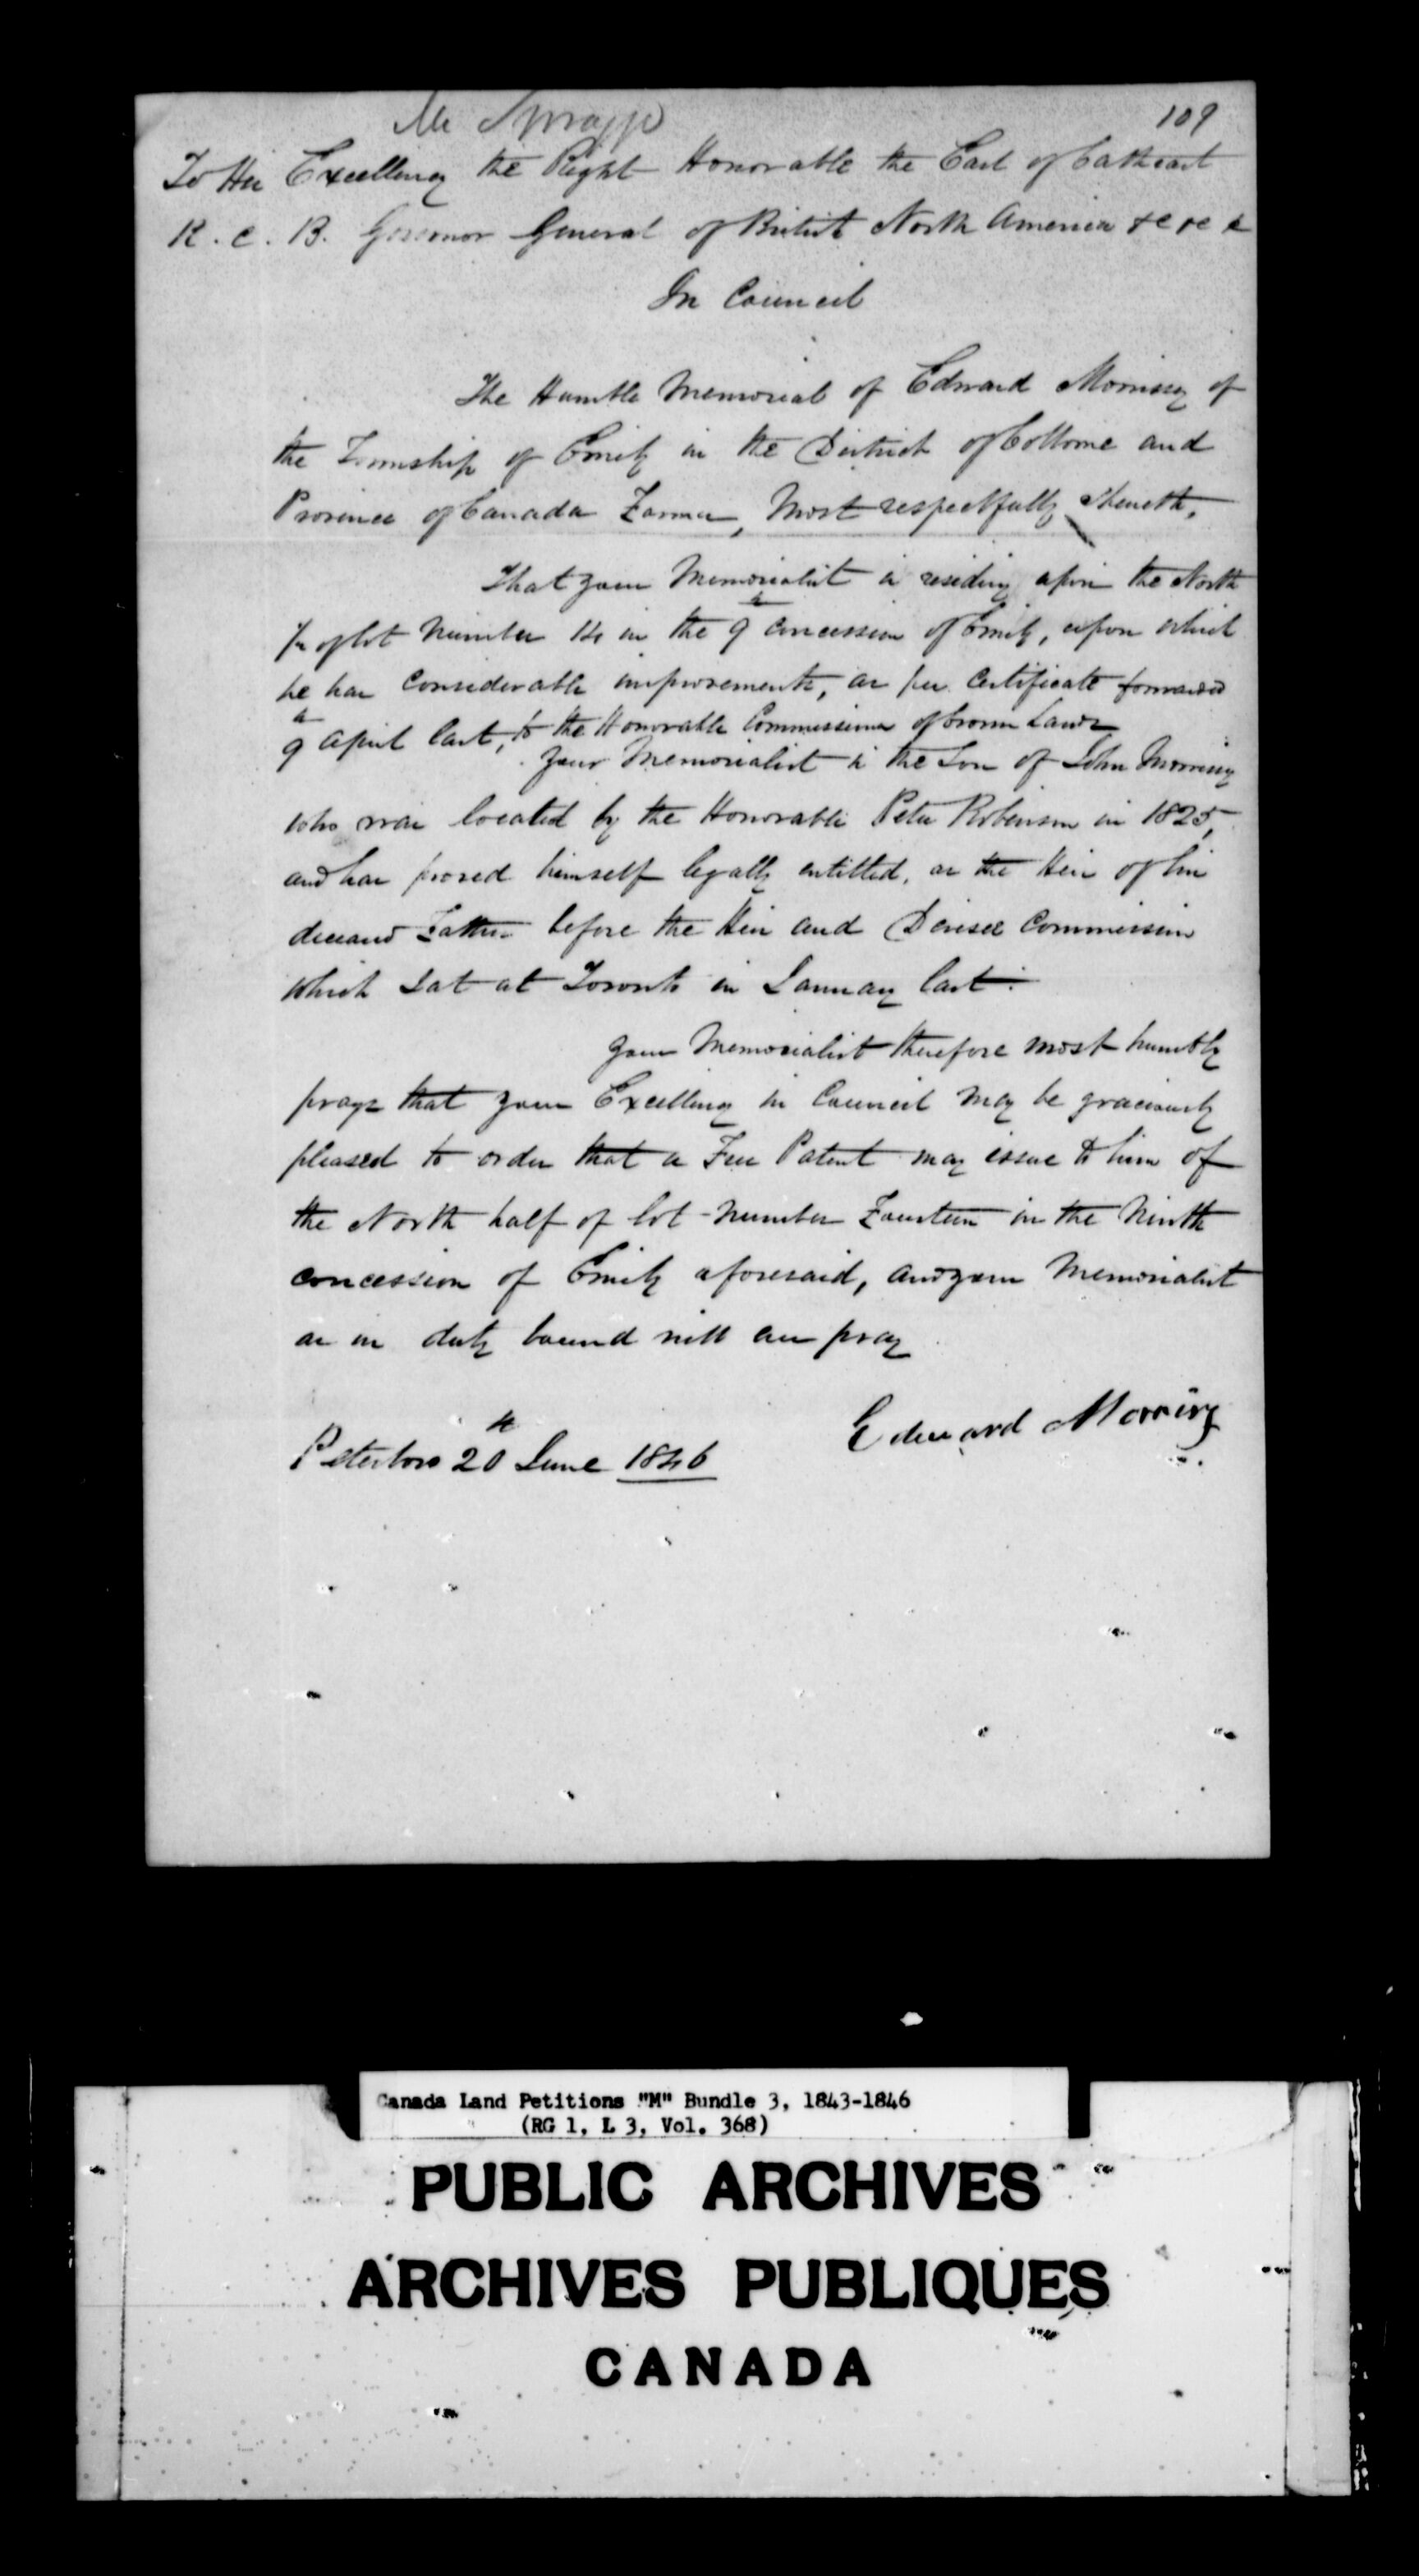 Mr Spragge
109
To His Excellency the Right Honorable the Earl of Cathcart
K. C. B. Governor General of British North America &c &c &
In Council
The Humble Memorial of Edward Morrisey of
the Township of Emily in the District of Colborne and
Province of Canada Farmer, Most respectfully Sheweth,
That your Memorialist is residing upon the North
½ of lot Number 14 in the 9th Concession of Emily, upon which
he has Considerable improvements, as per Certificate forwarded
9th April last, to the Honorable Commissioner of Crown Lands
Your Memorialist is the Son of John Morrisey
who was located by the Honorable Peter Robinson in 1825,
and has proved himself legally entitled, as the Heir of his
deceased Father before the Heir and Devisee Commission
which Sat at Toronto in January last.
Your Memorialist therefore most humbly
prays that your Excellency in Council may be graciously
pleased to order that a Free Patent may issue to him of
the North half of lot Number Fourteen in the Ninth
concession of Emily aforesaid, and your Memorialist
as in duty bound will ever pray
Edward Morrisy
Peterboro 20th June 1846
Canada Land Petitions "M" Bundle 3, 1843-1846
(RG 1, L 3, Vol. 368)
PUBLIC ARCHIVES
ARCHIVES PUBLIQUES
CANADA